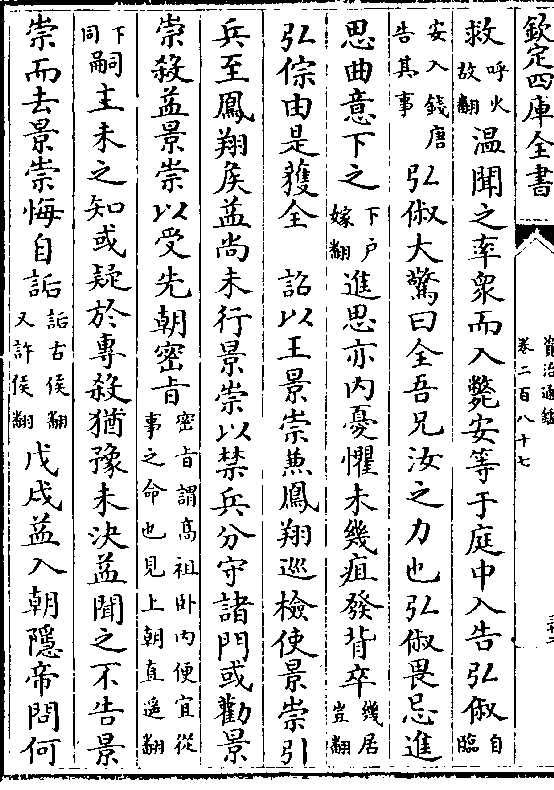 欽定四庫全書
資治通鑑
卷二百八十七
救呼火故翻温聞之率衆而入斃安等于庭中入告弘俶自臨
安入錢唐告其事弘俶大驚曰全吾兄汝之力也弘俶畏忌進
思曲意下之下戶嫁翻進思亦内憂懼未幾疽發背卒幾居豈翻
弘倧由是獲全　詔以王景崇兼鳳翔巡檢使景崇引
兵至鳳翔侯益尚未行景崇以禁兵分守諸門或勸景
崇殺益景崇以受先朝密㫖密㫖謂髙祖卧内便宜從事之命也見上朝直遥翻
下同嗣主未之知或疑於專殺猶豫未決益聞之不告景
崇而去景崇悔自詬詬古侯翻又許侯翻戊戌益入朝隱帝問何